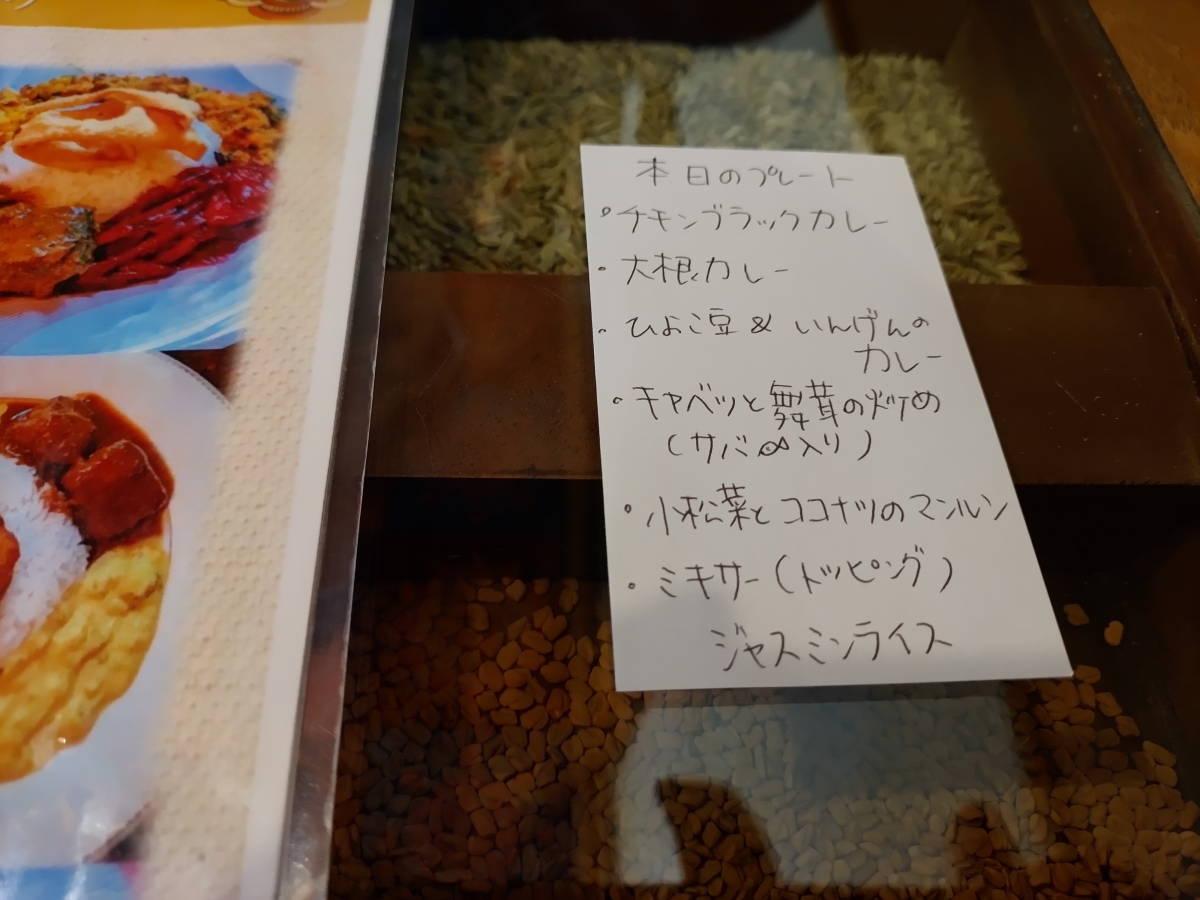 本日のプレート
・チキンブラックカレー
・大根カレー
・ひよこ豆 & いんげんの
カレー
・キャベツと舞茸の炒め
(サバ入り)
・小松菜とココナツのマンルン
・ミキサー(トッピング)
ジャスミンライス